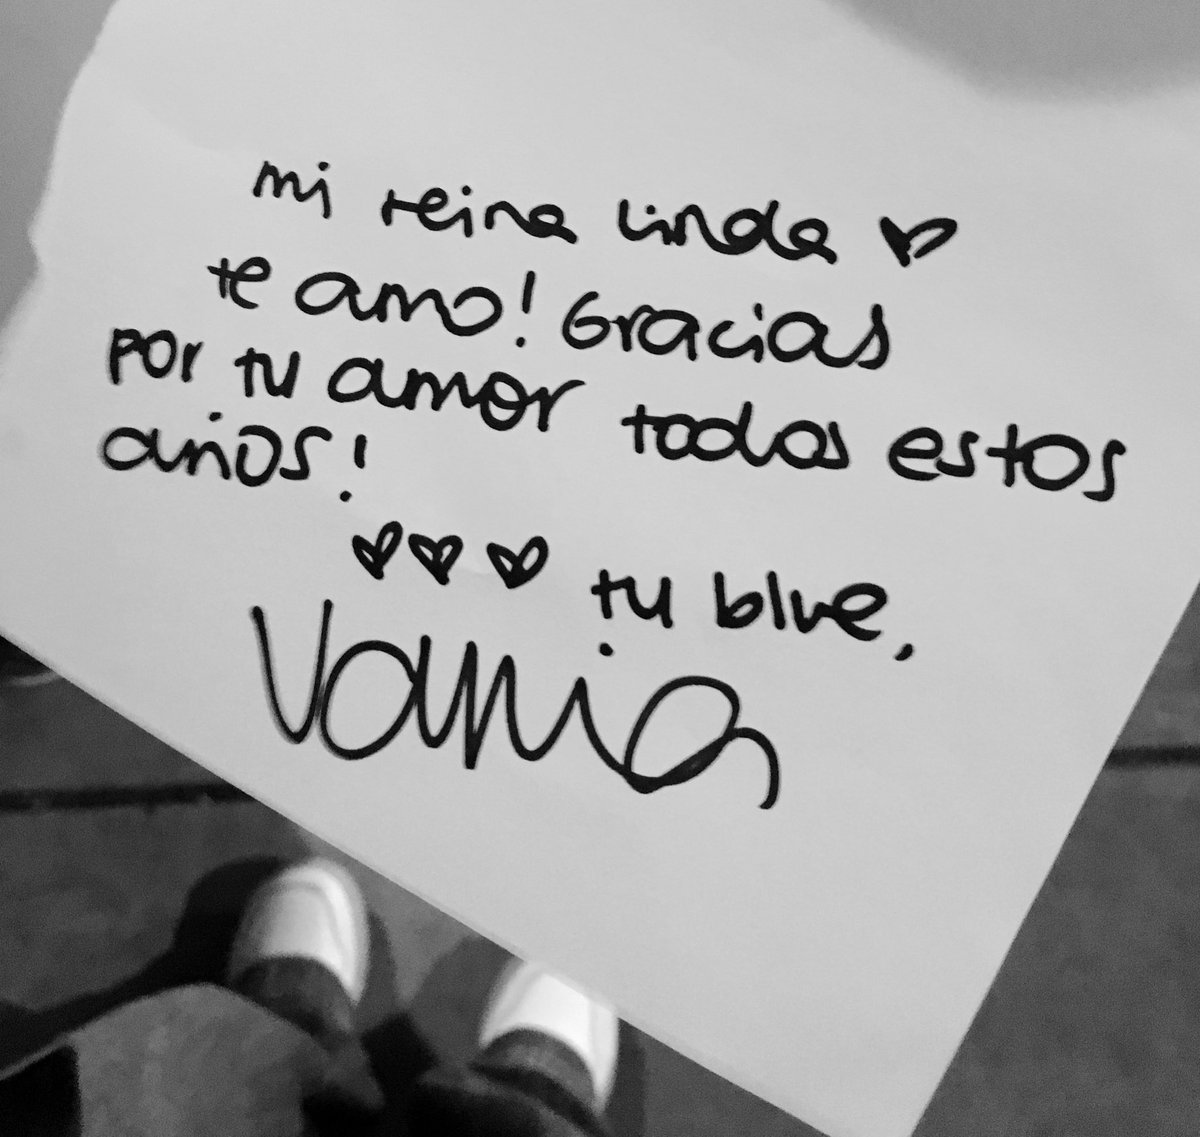 mi reina linda ♥
te amo! Gracias
por tu amor todos estos
años!
♥♥♥ tu blue,
Vania